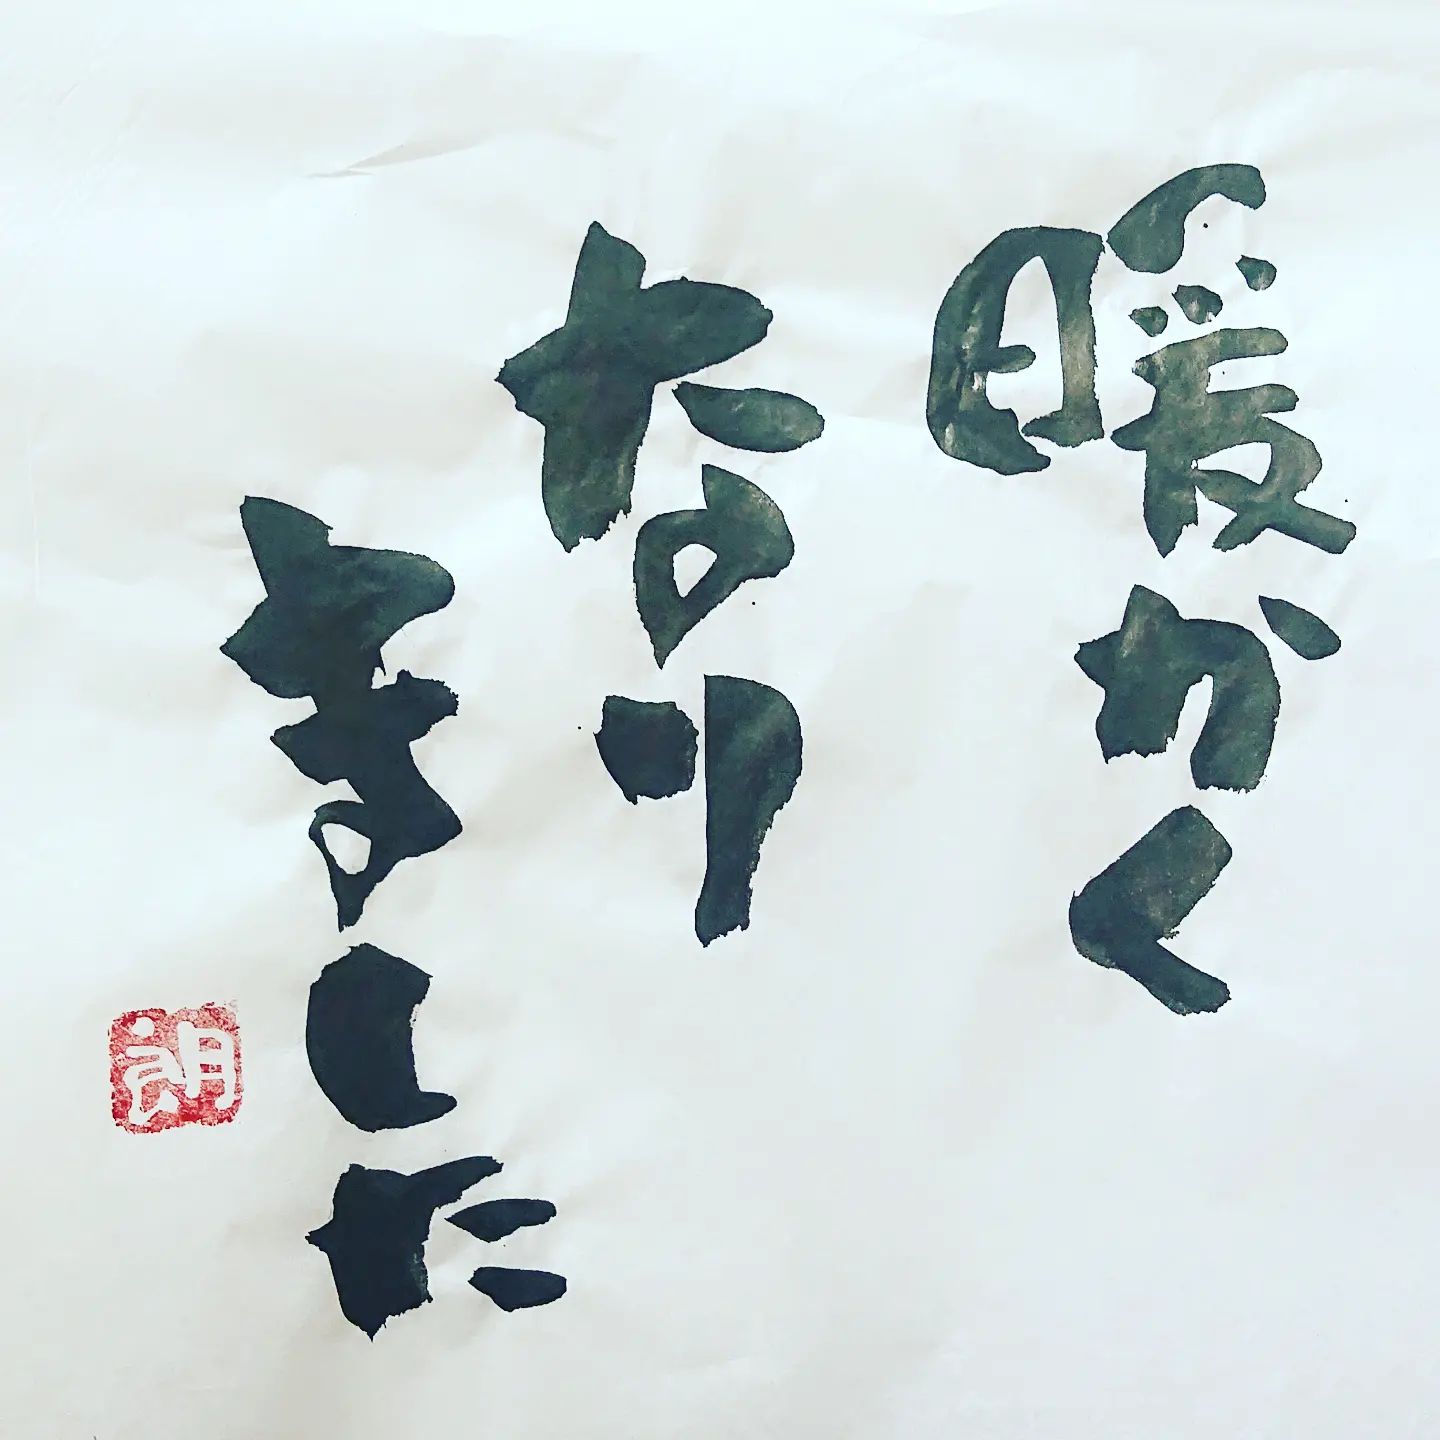 暖かく
なり
ました
朗